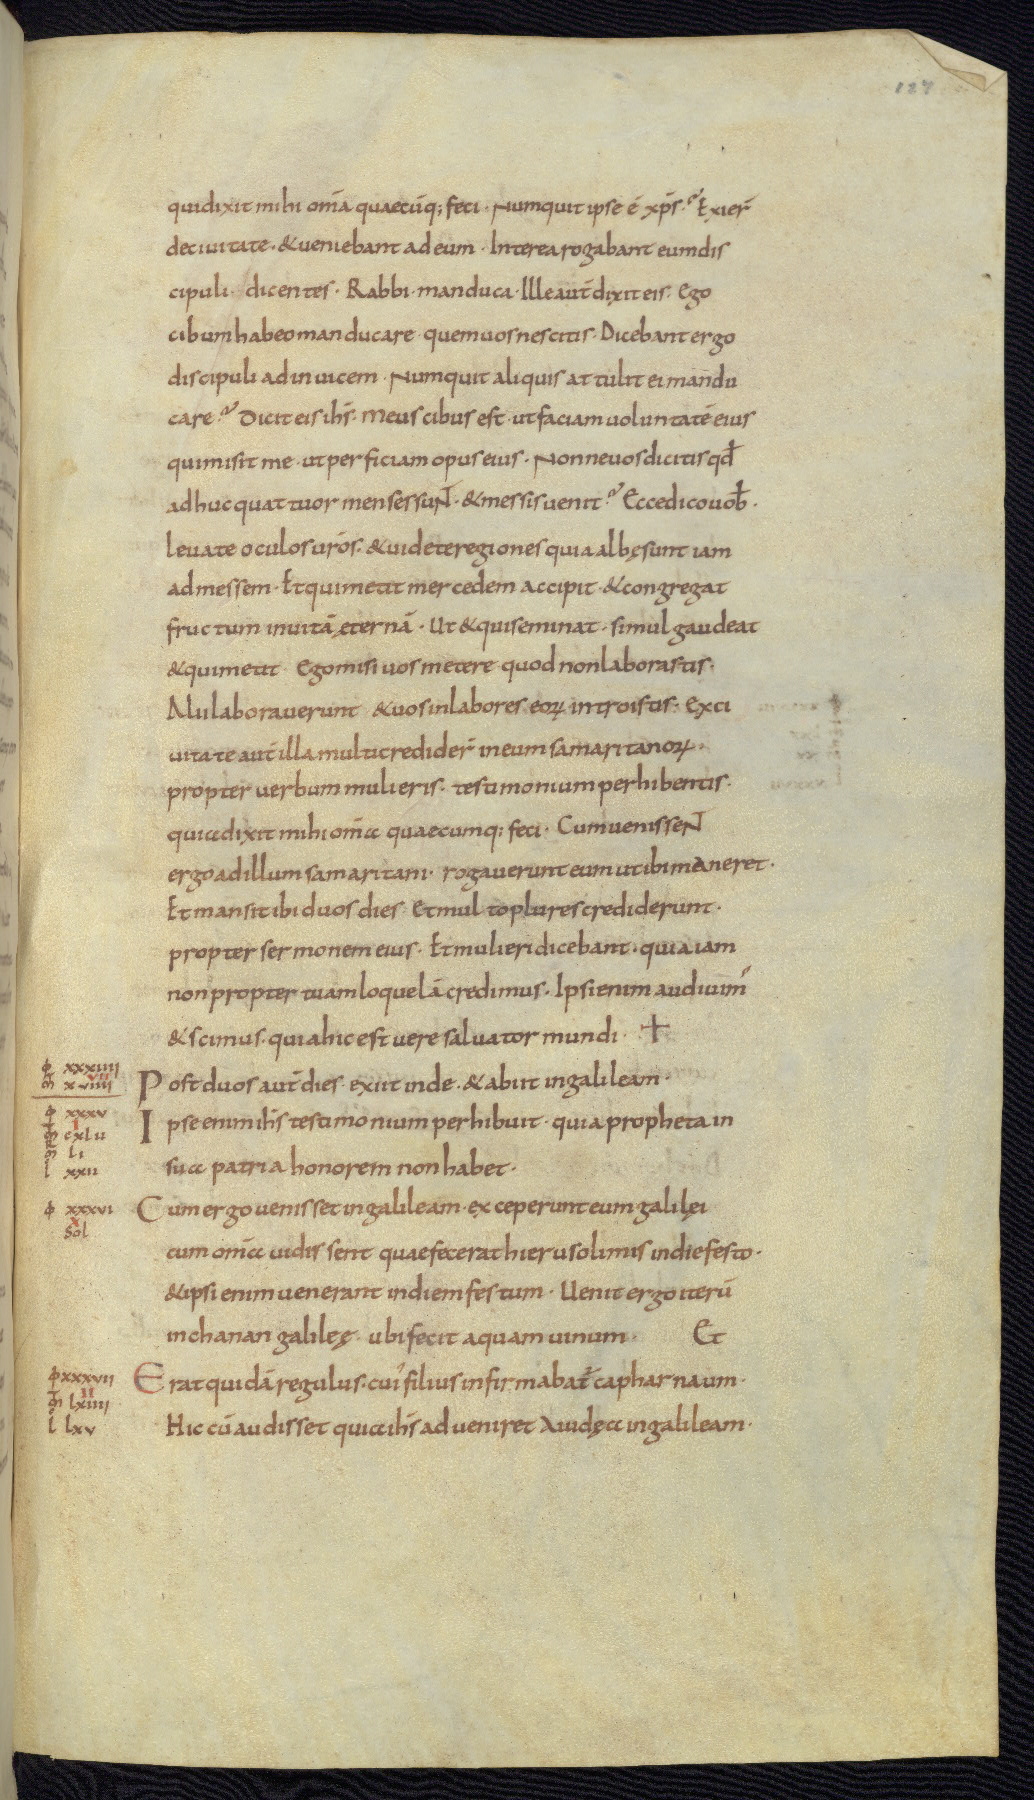 127
qui dixit mihi om̄a quaecūq; feci · Numquit ipse ē xp̄s · Exier̄
de ciuitate · & ueniebant ad eum · Interea rogabant eum dis
cipuli · dicentes · Rabbi · manduca · Ille aut̄ dixit eis · Ego
cibum habeo manducare · quem uos nescitis · Dicebant ergo
discipuli ad inuicem · Numquit aliquis attulit ei mandu
care · Dicit eis ih̄s · Meus cibus est · ut faciam uoluntatē eius
qui misit me · ut perficiam opus eius · Nonne uos dicitis qd̄
adhuc quattuor menses sunt̄ · & messis uenit · Ecce dico uob̄ ·
leuate oculos ur̄os · & uidete regiones quia albę sunt iam
ad messem · Et qui metit mercedem accipit · & congregat
fructum in uitā ęternā · Ut & qui seminat · simul gaudeat
& qui metit Ego misi uos metere quod non laborastis ·
Alii laborauerunt & uos in labores eoꝝ introistis · Ex ci
uitate aut̄ illa multi credider̄ in eum samaritanoꝝ ·
propter uerbum mulieris · testimonium perhibentis ·
quia dixit mihi om̄a quaecumq; feci · Cum uenissent̄
ergo ad illum samaritani · rogauerunt eum ut ibi maneret ·
Et mansit ibi duos dies · Et multo plures crediderunt ·
propter sermonem eius · Et mulieri dicebant · quia iam
non propter tuam loquelā credimus · Ipsi enim audiuim᾿
& scimus · quia hic est uere saluator mundi · +
ϕ xxxiiii
m̄ x uiiii
Post duos aut̄ dies · exiit inde · & abiit in galileam ·
ϕ xxxv
Ipse enim ih̄s testimonium perhibuit · quia propheta in
m̄ cxlii
m̄ li
l xxii
sua patria honorem non habet ·
ϕ xxxvi
Cum ergo uenisset in galileam · exceperunt eum galilęi
sol
x
cum om̄a uidissent quae fecerat hierusolimis in die festo ·
& ipsi enim uenerant in diem festum · Uenit ergo iterū
in chanan galilęę · ubi fecit aquam uinum · Et
ϕ xxxvii
Erat quidā regulus · cui᾿ filius infirmabat᾿ capharnaum ·
m̄ lxiiii
ii
l lxv
Hic cū audisset quia ih̄s adueniret a iudęa in galileam ·